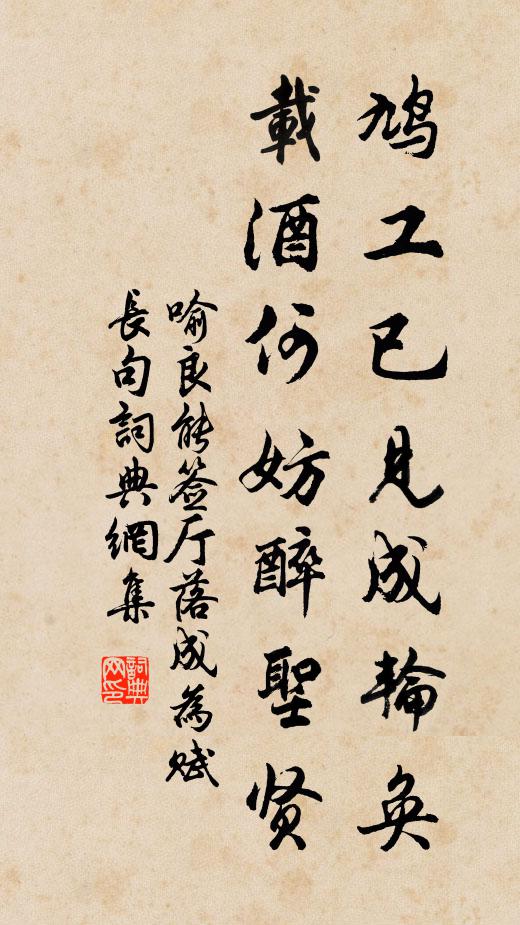 鳩工已見成輪奐
載酒何妨醉聖贤
喻良能签厅落成為赋
長句詞典網集
詞典網印